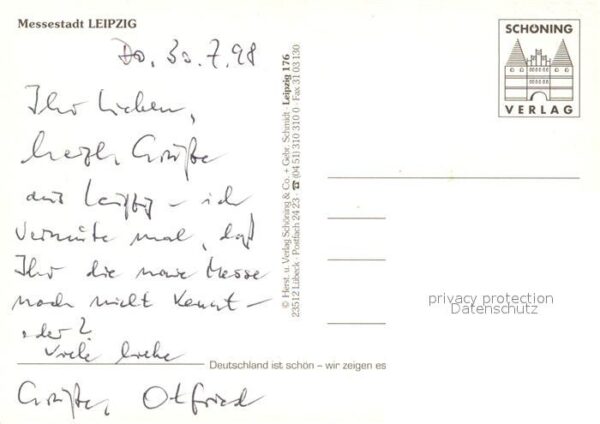 Messestadt LEIPZIG
Do, 30.7.98
Ihr Lieben,
herzl. Grüße
aus Leipzig – ich
vermute mal, daß
Ihr die neue Messe
noch nicht kennt –
oder?
Viele liebe
Grüße, Otfried
© Herst. u. Verlag Schöning & Co. + Gebr. Schmidt · Leipzig 176
23512 Lübeck · Postfach 24 23 · ☎ (04 51) 310 310 0 · Fax 31 03 130
Deutschland ist schön – wir zeigen es
SCHÖNING
VERLAG
privacy protection
Datenschutz